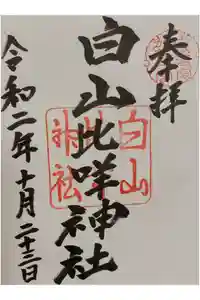 奉拝
白山比咩神社
白山
神社
令和二年十月二十三日